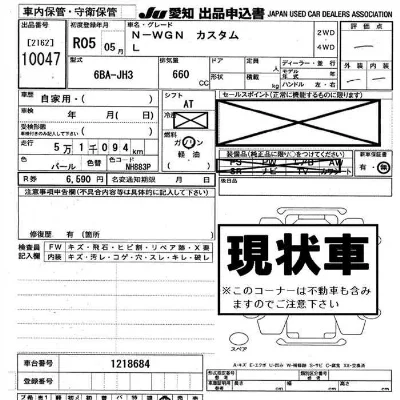 車内保管・守衛保管
JU 愛知 出品申込書 JAPAN USED CAR DEALERS ASSOCIATION
出品番号
[2162]
10047
初度登録年月
R05 05 月
車名・グレード
N-WGN カスタム
L
2WD
4WD
評価点
外装
内装
型式
6BA-JH3
排気量
660 CC
ドア
形状
定員 人
積載量 kg
ディーラー・並行
モデル年式 年
ハンドル 左・右
車歴
自家用・( )
車検
年 月( 日)
受検形態
走行
5万1千094 km
シフト
AT
冷房
燃料
ガソリン
軽油
セールスポイント(正常に機能するものに限ります)
装備品(純正品に限り○をつけてください)
新車保証書
有・無
後日品
色
パール
色替
色コード
NH883P
R券
6,590 円
名変通知期限 月 日
注意事項申告欄(不具合内容等は具体的に記入して下さい)
修復歴( 有・無 )
検査員記入欄
FW キズ・飛石・ヒビ割・リペア跡・X要
内装 キズ・汚レ・コゲ・穴・スレ・キレ・破レ
現状車
※このコーナーは不動車も含み
ますのでご注意下さい
スペア
車台番号
1218684
登録番号